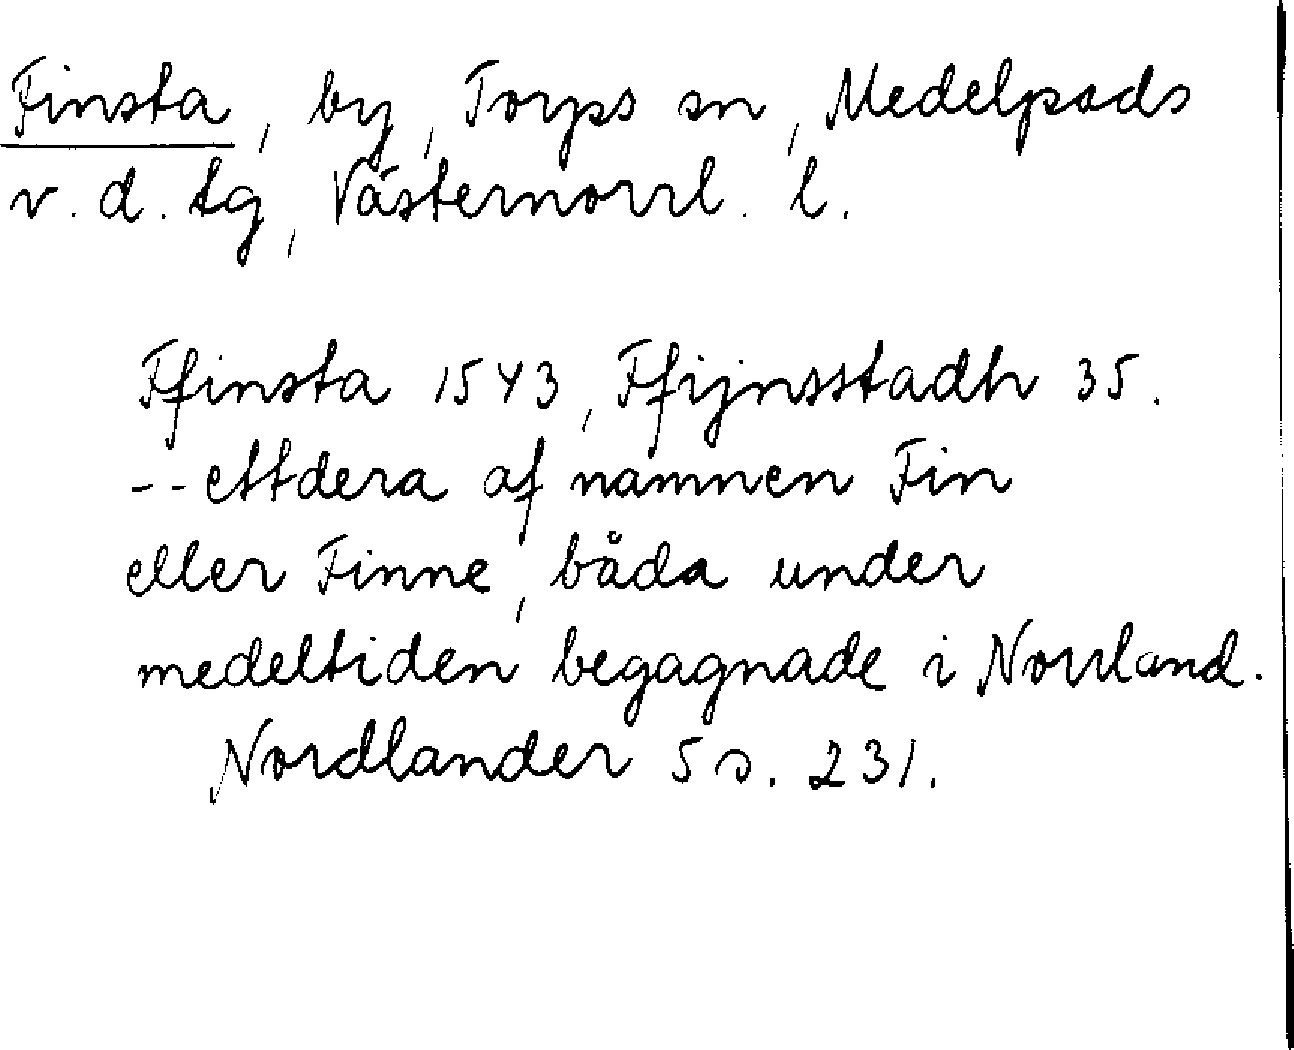 Finsta, by, Torps sn, Medelpads
v. d. tg, Västernorrl. l.
Ffinsta 1543, Ffijnsstadh 35.
-- ettdera af namnen Fin
eller Finne, båda under
medeltiden begagnade i Norrland.
Nordlander 5 s. 231.